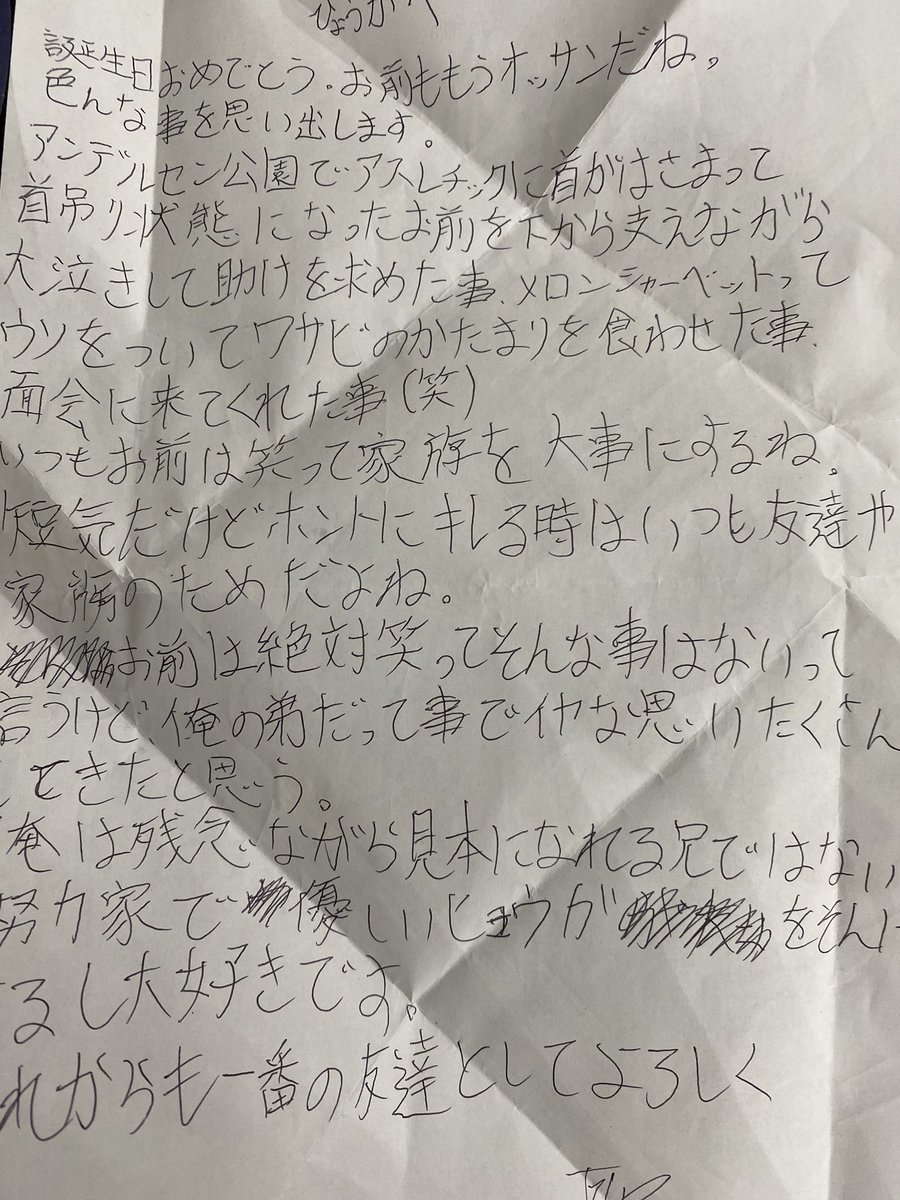 ひょうがへ
誕生日おめでとう。お前ももうオッサンだね。
色んな事を思い出します。
アンデルセン公園でアスレチックに首がはさまって
首吊り状態になったお前を下から支えながら
大泣きして助けを求めた事、メロンシャーベットって
ウソをついてワサビのかたまりを食わせた事、
面会に来てくれた事(笑)
いつもお前は笑って家族を大事にするね。
短気だけどホントにキレる時はいつも友達や
家族のためだよね。
お前は絶対笑ってそんな事はないって
言うけど俺の弟だって事でイヤな思いたくさん
してきたと思う。
俺は残念ながら見本になれる兄ではない
努力家で優しいヒョウガをそんけ
るし大好きです。
れからも一番の友達としてよろしく